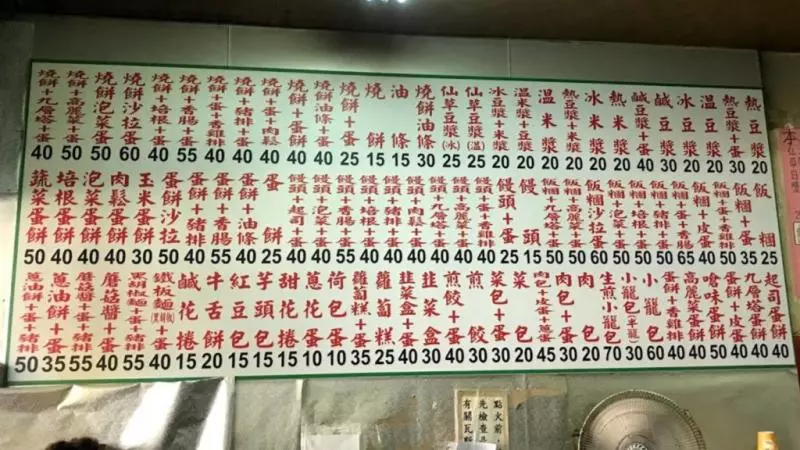 熱豆漿 20
熱豆漿+蛋 30
溫豆漿 20
冰豆漿 20
鹹豆漿 30
鹹豆漿+蛋 40
熱米漿 20
冰米漿 20
熱豆漿+米漿 20
溫米漿 20
溫米漿+豆漿 20
冰豆漿+米漿 20
仙草豆漿(溫) 25
仙草豆漿(冰) 25
燒餅油條 30
油條 15
燒餅 15
燒餅+蛋 25
燒餅油條+蛋 40
燒餅+蛋餅 40
燒餅+蛋+肉鬆 40
燒餅+豬排+蛋 40
燒餅+蛋+香雞排 40
燒餅+香腸+蛋 55
燒餅+培根+蛋 40
燒餅沙拉蛋 60
燒餅泡菜蛋 50
燒餅+高麗菜+蛋 50
燒餅+九層塔+蛋 40
飯糰 25
飯糰+蛋 35
飯糰
飯糰+香腸+蛋 65
飯糰+豬排+蛋 50
飯糰+培根+蛋
飯糰+泡菜+蛋 50
飯糰沙拉蛋 60
飯糰+九層塔+蛋 50
飯糰+高麗菜+蛋 50
饅頭 15
饅頭+蛋 25
饅頭+蛋+香雞排 40
饅頭+高麗菜+蛋 40
饅頭+九層塔+蛋 40
饅頭+肉鬆+蛋 40
饅頭+豬排+蛋 40
饅頭+培根+蛋 40
饅頭+香腸+蛋 55
饅頭+泡菜+蛋 40
饅頭+起司+蛋 40
蛋餅 25
蛋餅
蛋餅+香腸 55
蛋餅+豬排 40
蛋餅沙拉 50
玉米蛋餅 30
肉鬆蛋餅 40
泡菜蛋餅 40
培根蛋餅 40
蔬菜蛋餅 50
起司蛋餅 40
九層塔蛋餅 40
蛋餅+皮蛋 40
嗆味蛋餅 50
高麗菜蛋餅 40
蛋餅+香雞排 40
小籠包 60
小籠包(半籠) 30
生煎小籠包 70
肉包 20
肉包+蛋 30
肉包+皮蛋+蔥蛋 45
菜包 20
菜包+蛋 30
煎餃 30
煎餃+蛋 40
韭菜盒 30
韭菜盒+蛋 40
蘿蔔糕 25
蘿蔔糕+蛋 35
荷包蛋 10
蔥花捲 10
甜花捲 15
芋頭包 15
紅豆包 15
牛舌餅 20
鹹花捲 15
鐵板麵(黑胡椒) 40
黑胡椒麵+蛋+豬排 55
蘑菇麵+蛋 40
蘑菇醬+蛋+豬排 55
蔥油餅+蛋 35
蔥油餅+蛋+豬排 50
點火前，
先檢查是
有關瓦斯